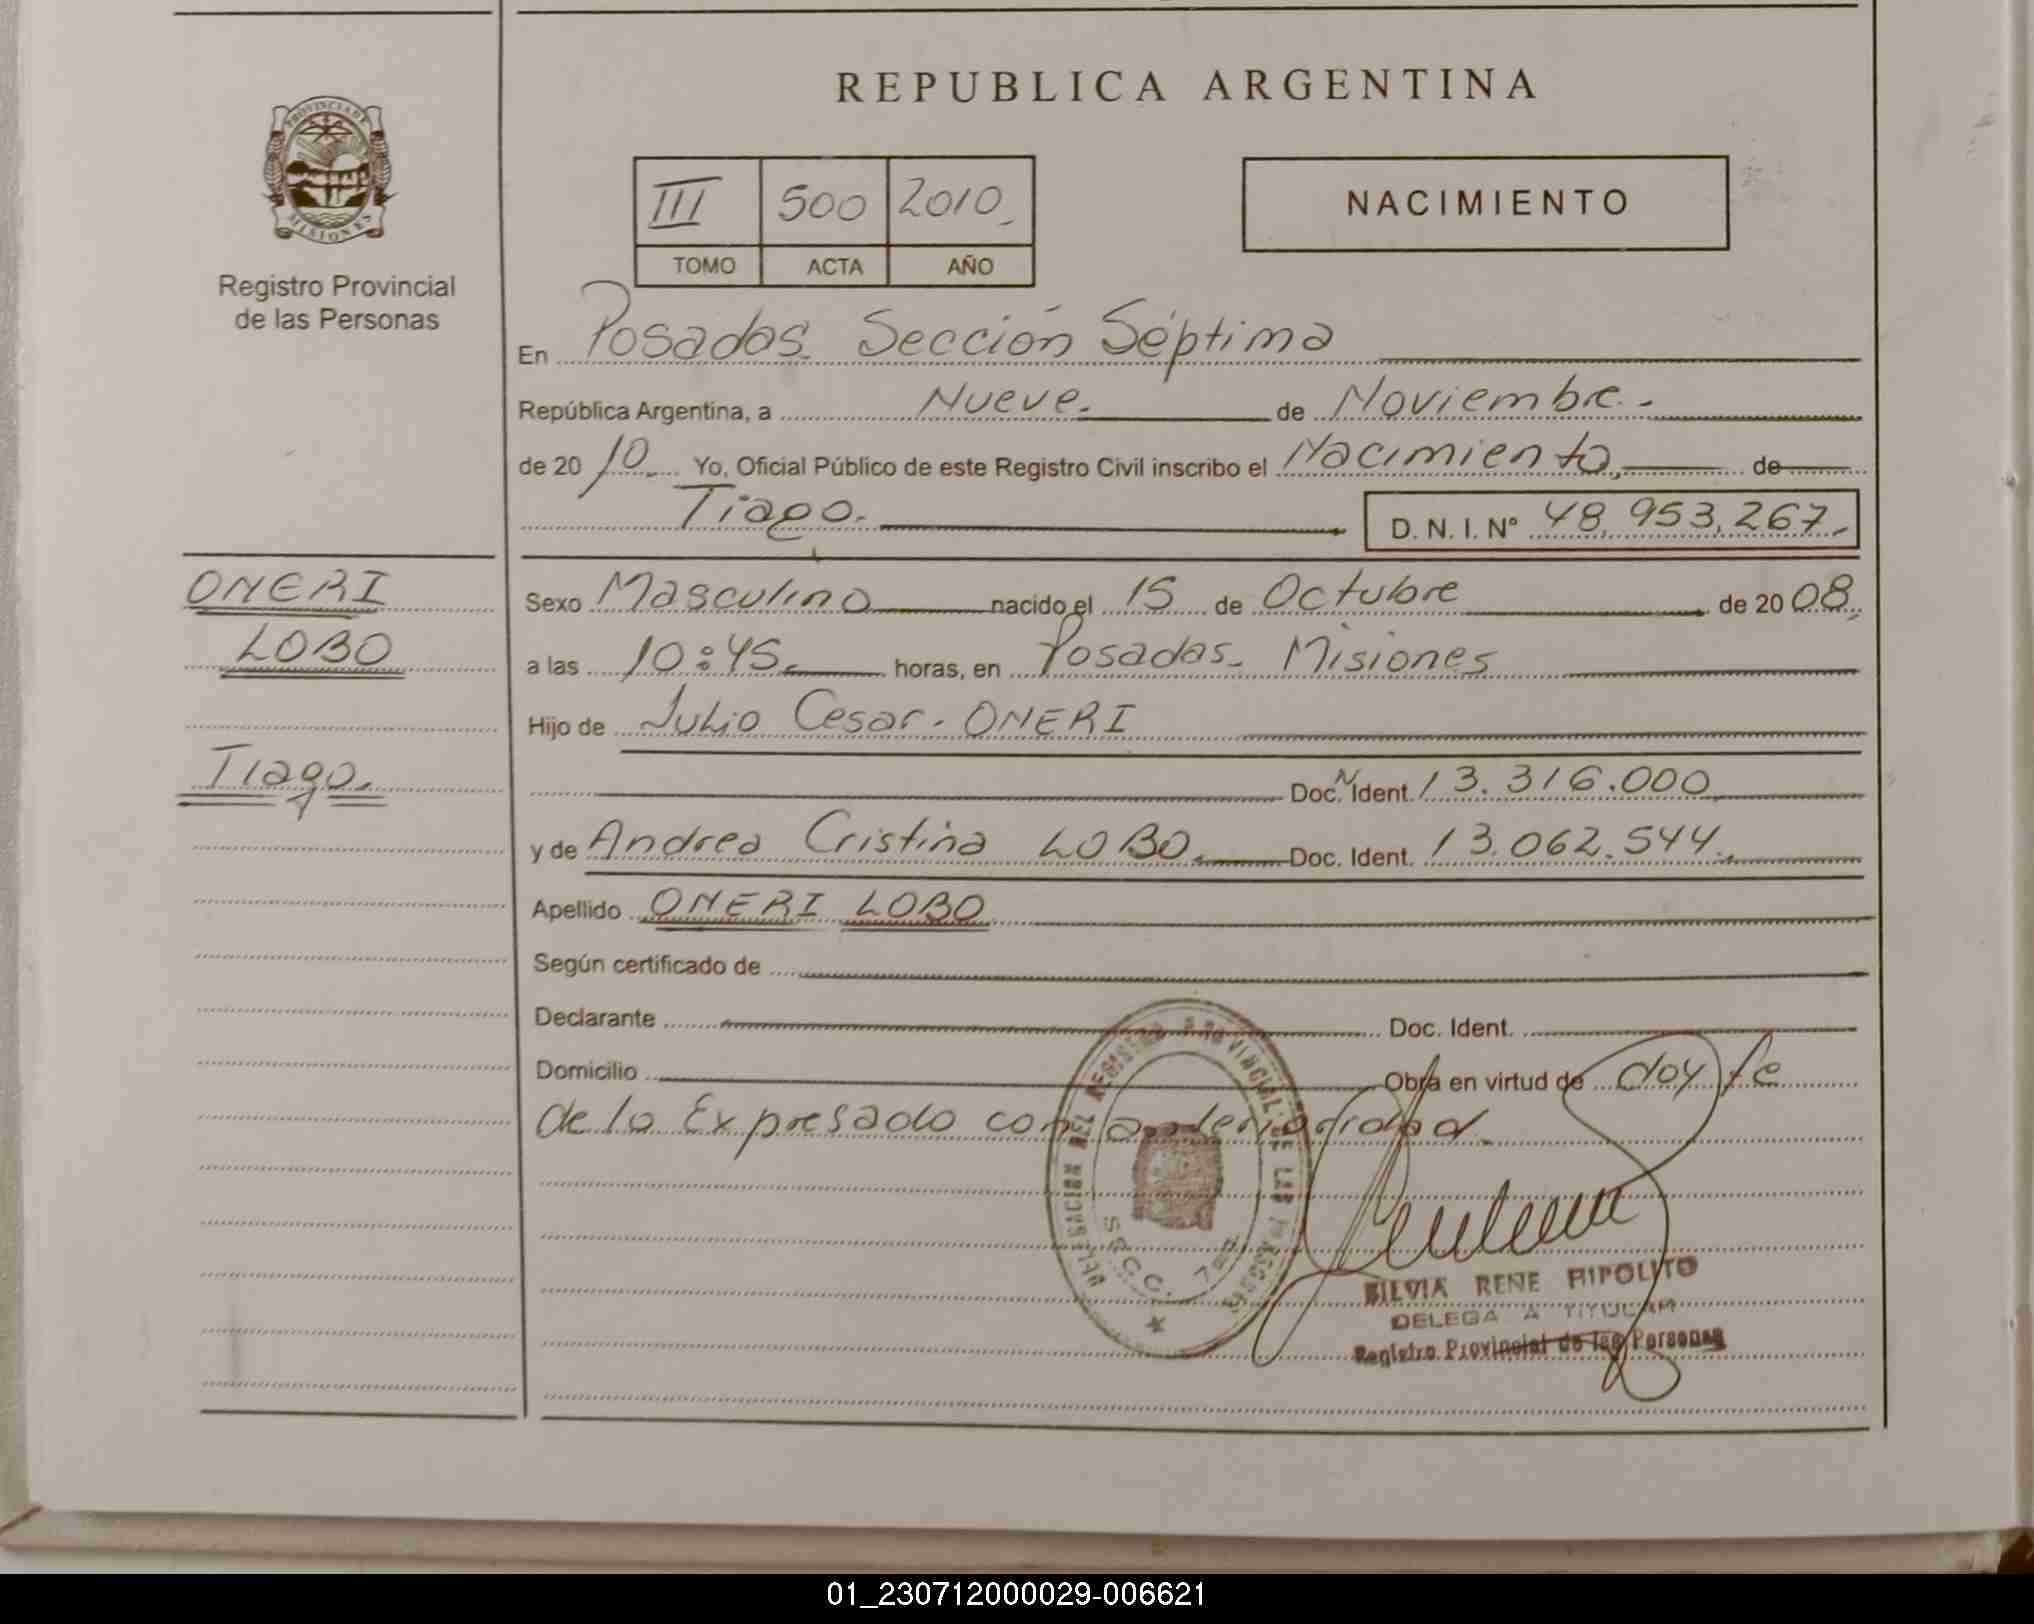 REPUBLICA ARGENTINA
PROVINCIA DE
MISIONES
Registro Provincial
de las Personas
III 500 2010
TOMO ACTA AÑO
NACIMIENTO
En Posadas Sección Séptima
República Argentina, a Nueve. de Noviembre.
de 20 10 Yo, Oficial Público de este Registro Civil inscribo el Nacimiento, de
Tiago. D. N. I. N° 48.953.267.
ONERI
LOBO
Tiago.
Sexo Masculino nacido el 15 de Octubre de 20 08.
a las 10:45. horas, en Posadas. Misiones
Hijo de Julio Cesar. ONERI
Doc. N Ident. 13.316.000
y de Andrea Cristina LOBO. Doc. Ident. 13.062.544.
Apellido ONERI LOBO
Según certificado de
Declarante Doc. Ident.
Domicilio Obra en virtud de doy fe
de lo Expresado con
DELEGACION DEL REGISTRO PROVINCIAL DE LAS PERSONAS
SECC. 7
SILVIA RENE HIPOLITO
DELEGA A TITULAR
Registro Provincial de las Personas
01_230712000029-006621